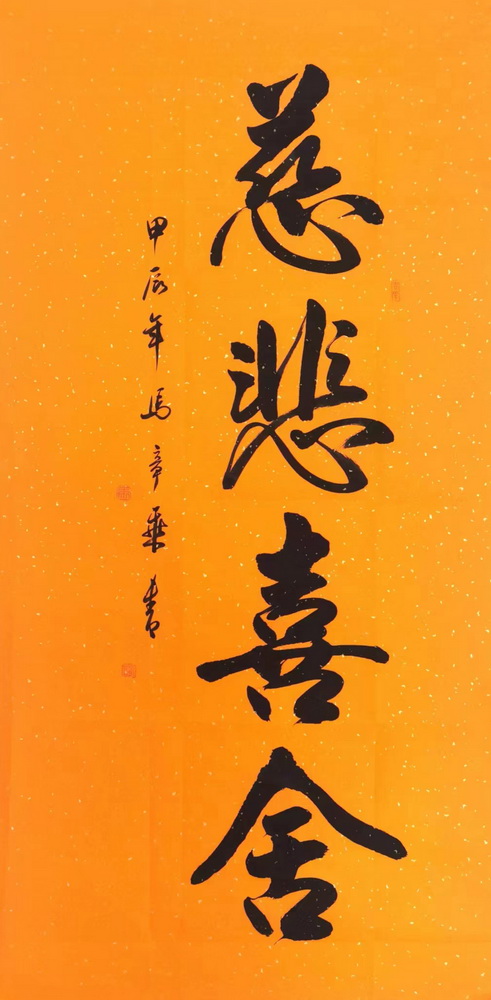 慈悲喜舍
甲辰年馬章乘書